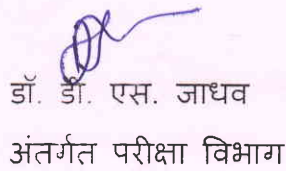 डॉ. डी. एस. जाधव
अंतर्गत परीक्षा विभाग